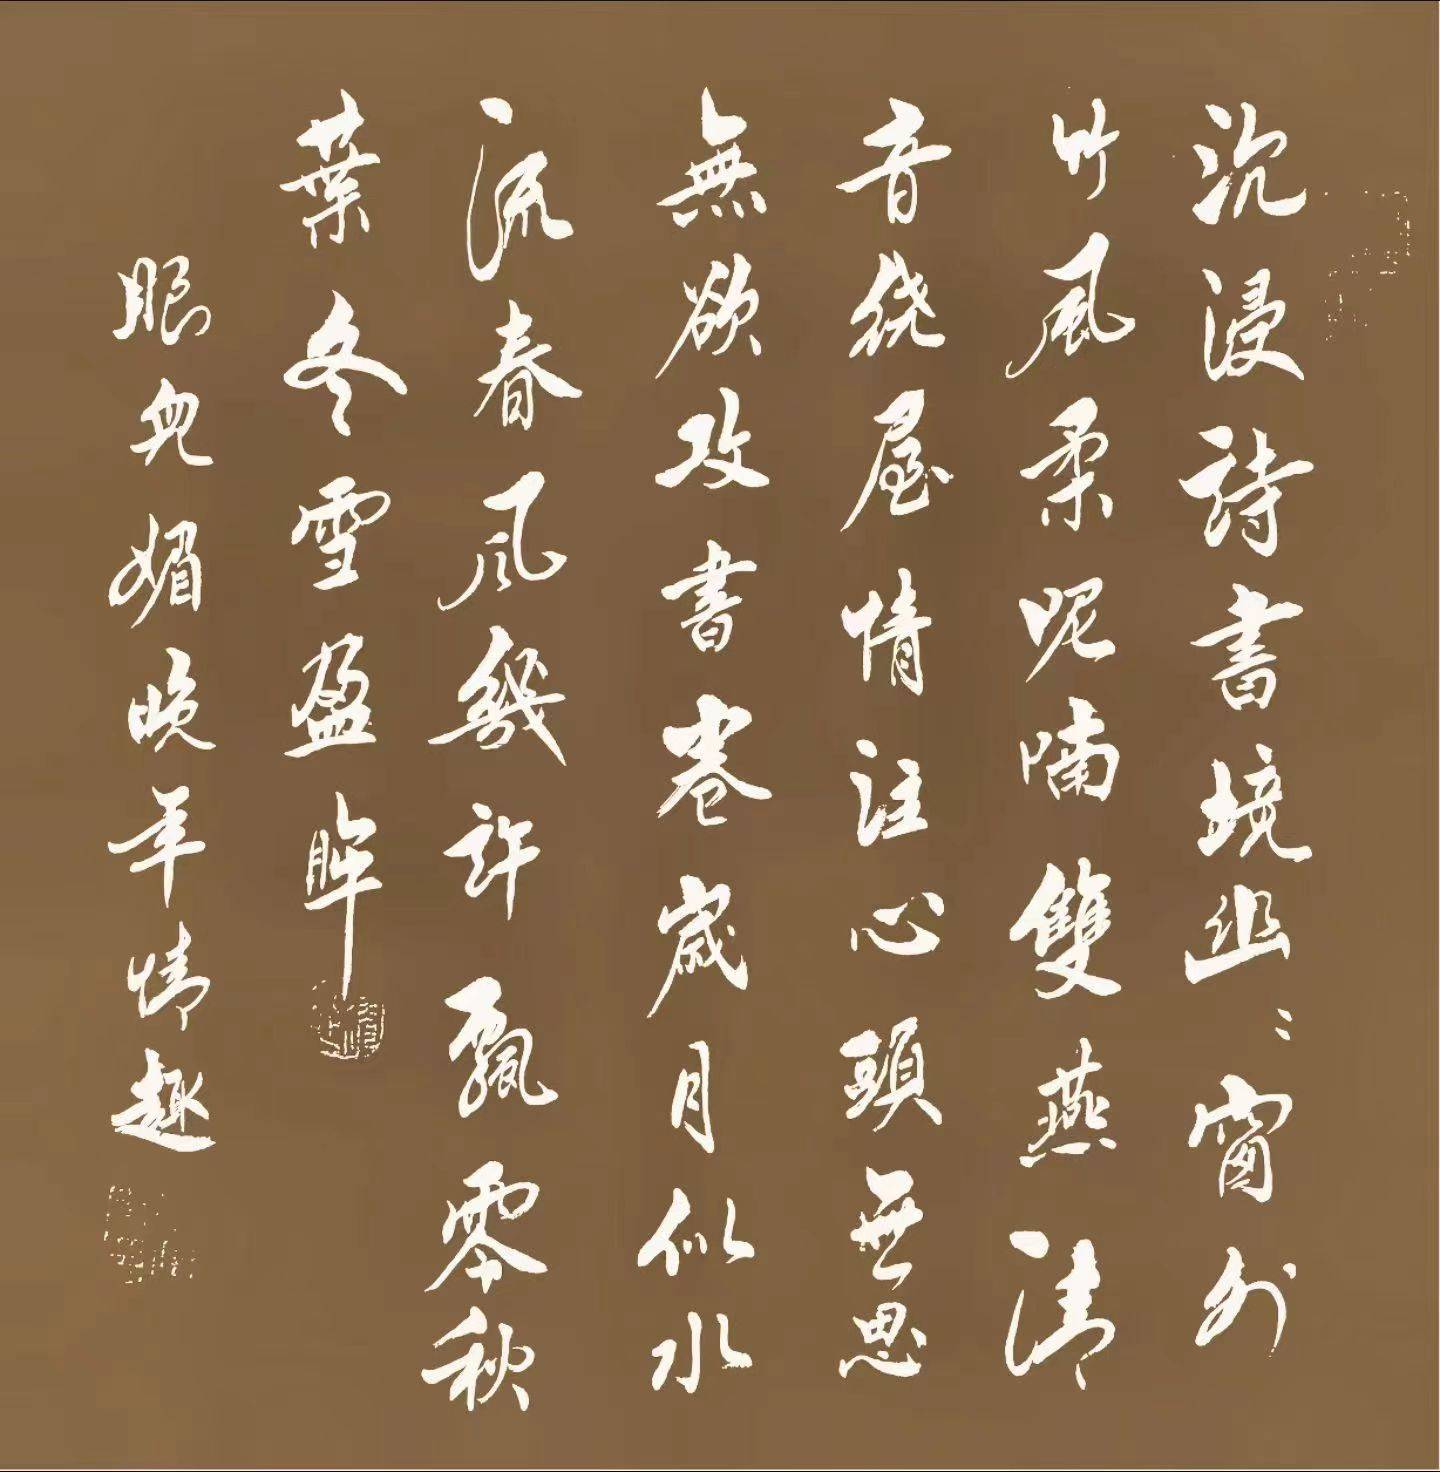 沉浸詩書境幽幽窗外
竹風柔呢喃雙燕清
音绕屋情注心頭無思
無欲攻書卷歲月似水
流春風幾許飄零秋
葉冬雪盈眸
眼兒媚晚年情趣